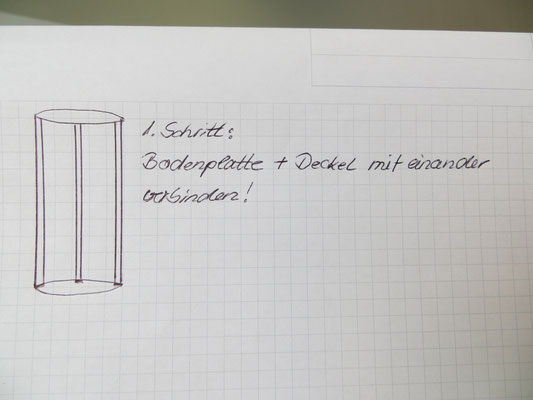 1. Schritt:
Bodenplatte + Deckel mit einander
verbinden!